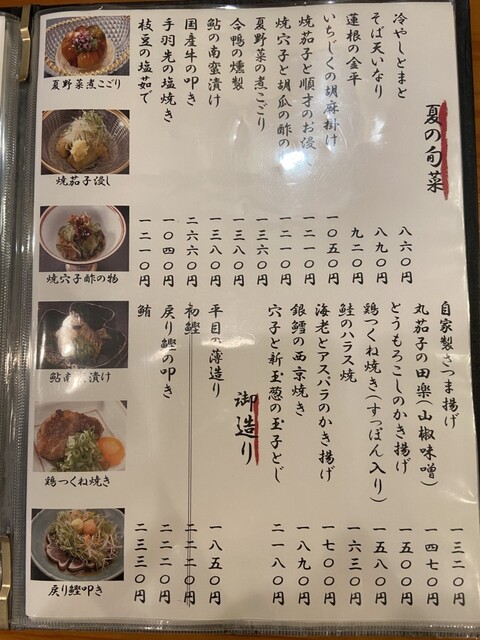 夏の旬菜
冷やしとまと 八六〇円
そば天いなり 八九〇円
蓮根の金平 九二〇円
いちじくの胡麻掛け 一〇五〇円
焼茄子と順才のお浸 一二一〇円
焼穴子と胡瓜の酢の 一二一〇円
夏野菜の煮こごり 一三六〇円
合鴨の燻製 一三八〇円
鮎の南蛮漬け 一三八〇円
国産牛の叩き 二六六〇円
手羽先の塩焼き 一〇四〇円
枝豆の塩茹で 一二一〇円
自家製さつま揚げ 一三二〇円
丸茄子の田楽(山椒味噌) 一四七〇円
とうもろこしのかき揚げ 一五〇〇円
鶏つくね焼き(すっぽん入り) 一五八〇円
鮭のハラス焼 一六三〇円
海老とアスパラのかき揚げ 一七〇〇円
銀鱈の西京焼き 一八九〇円
穴子と新玉葱の玉子とじ 二一八〇円
御造り
平目の薄造り 一八五〇円
初鰹 二二二〇円
戻り鰹の叩き 二二二〇円
鮪 二三三〇円
夏野菜煮こごり
焼茄子浸し
焼穴子酢の物
鮎南漬け
鶏つくね焼き
戻り鰹叩き